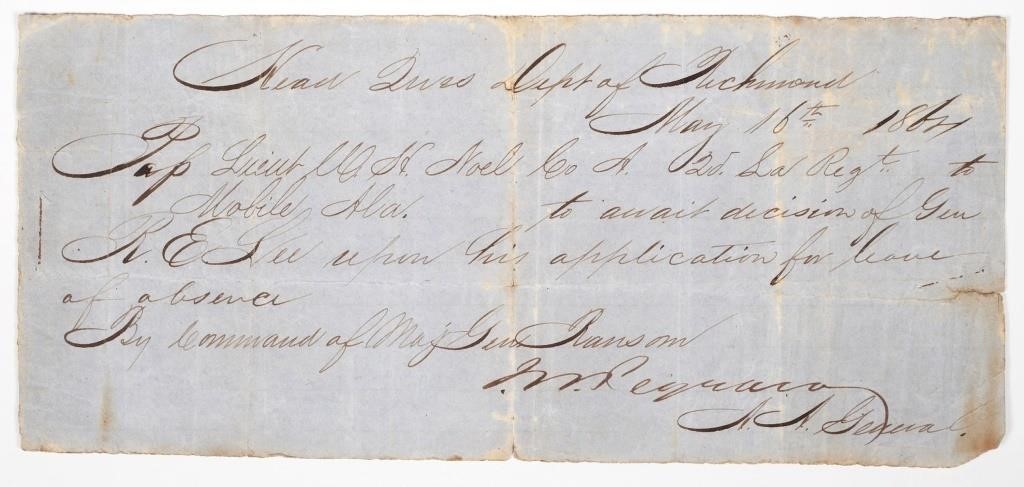 Head Qurs Dept of Richmond
May 16th 1864
Pass Lieut W. H. Noel Co A. 2d. La Regt. to
Mobile, Ala. to await decision of Gen
R. E Lee upon his application for leave
of absence
By Command of Maj Gen Ransom
Pegram
A. A. General.